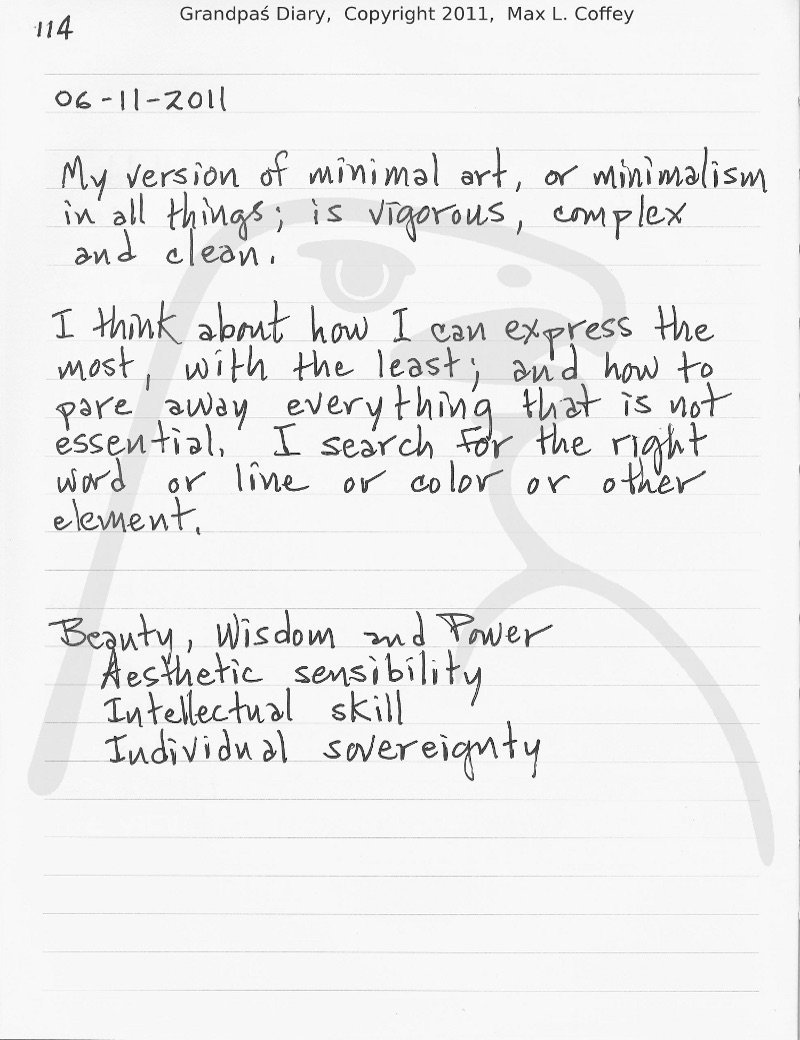 Grandpaś Diary, Copyright 2011, Max L. Coffey
114
06-11-2011
My version of minimal art, or minimalism
in all things; is vigorous, complex
and clean.
I think about how I can express the
most, with the least; and how to
pare away everything that is not
essential. I search for the right
word or line or color or other
element.
Beauty, Wisdom and Power
Aesthetic sensibility
Intellectual skill
Individual sovereignty